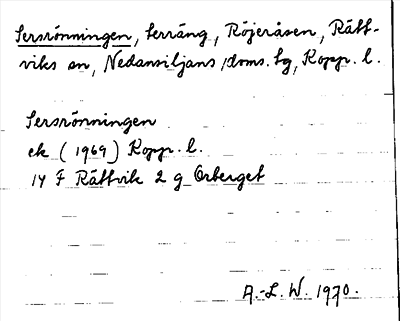 Sersrönningen, Serräng, Röjeråsen, Rätt-
viks sn, Nedansiljans doms. sg, Kopp. l.
Sersrönningen
ek (1969) Kopp. l.
14 F Rättvik 2 g Orberget
A.-L. W. 1970.